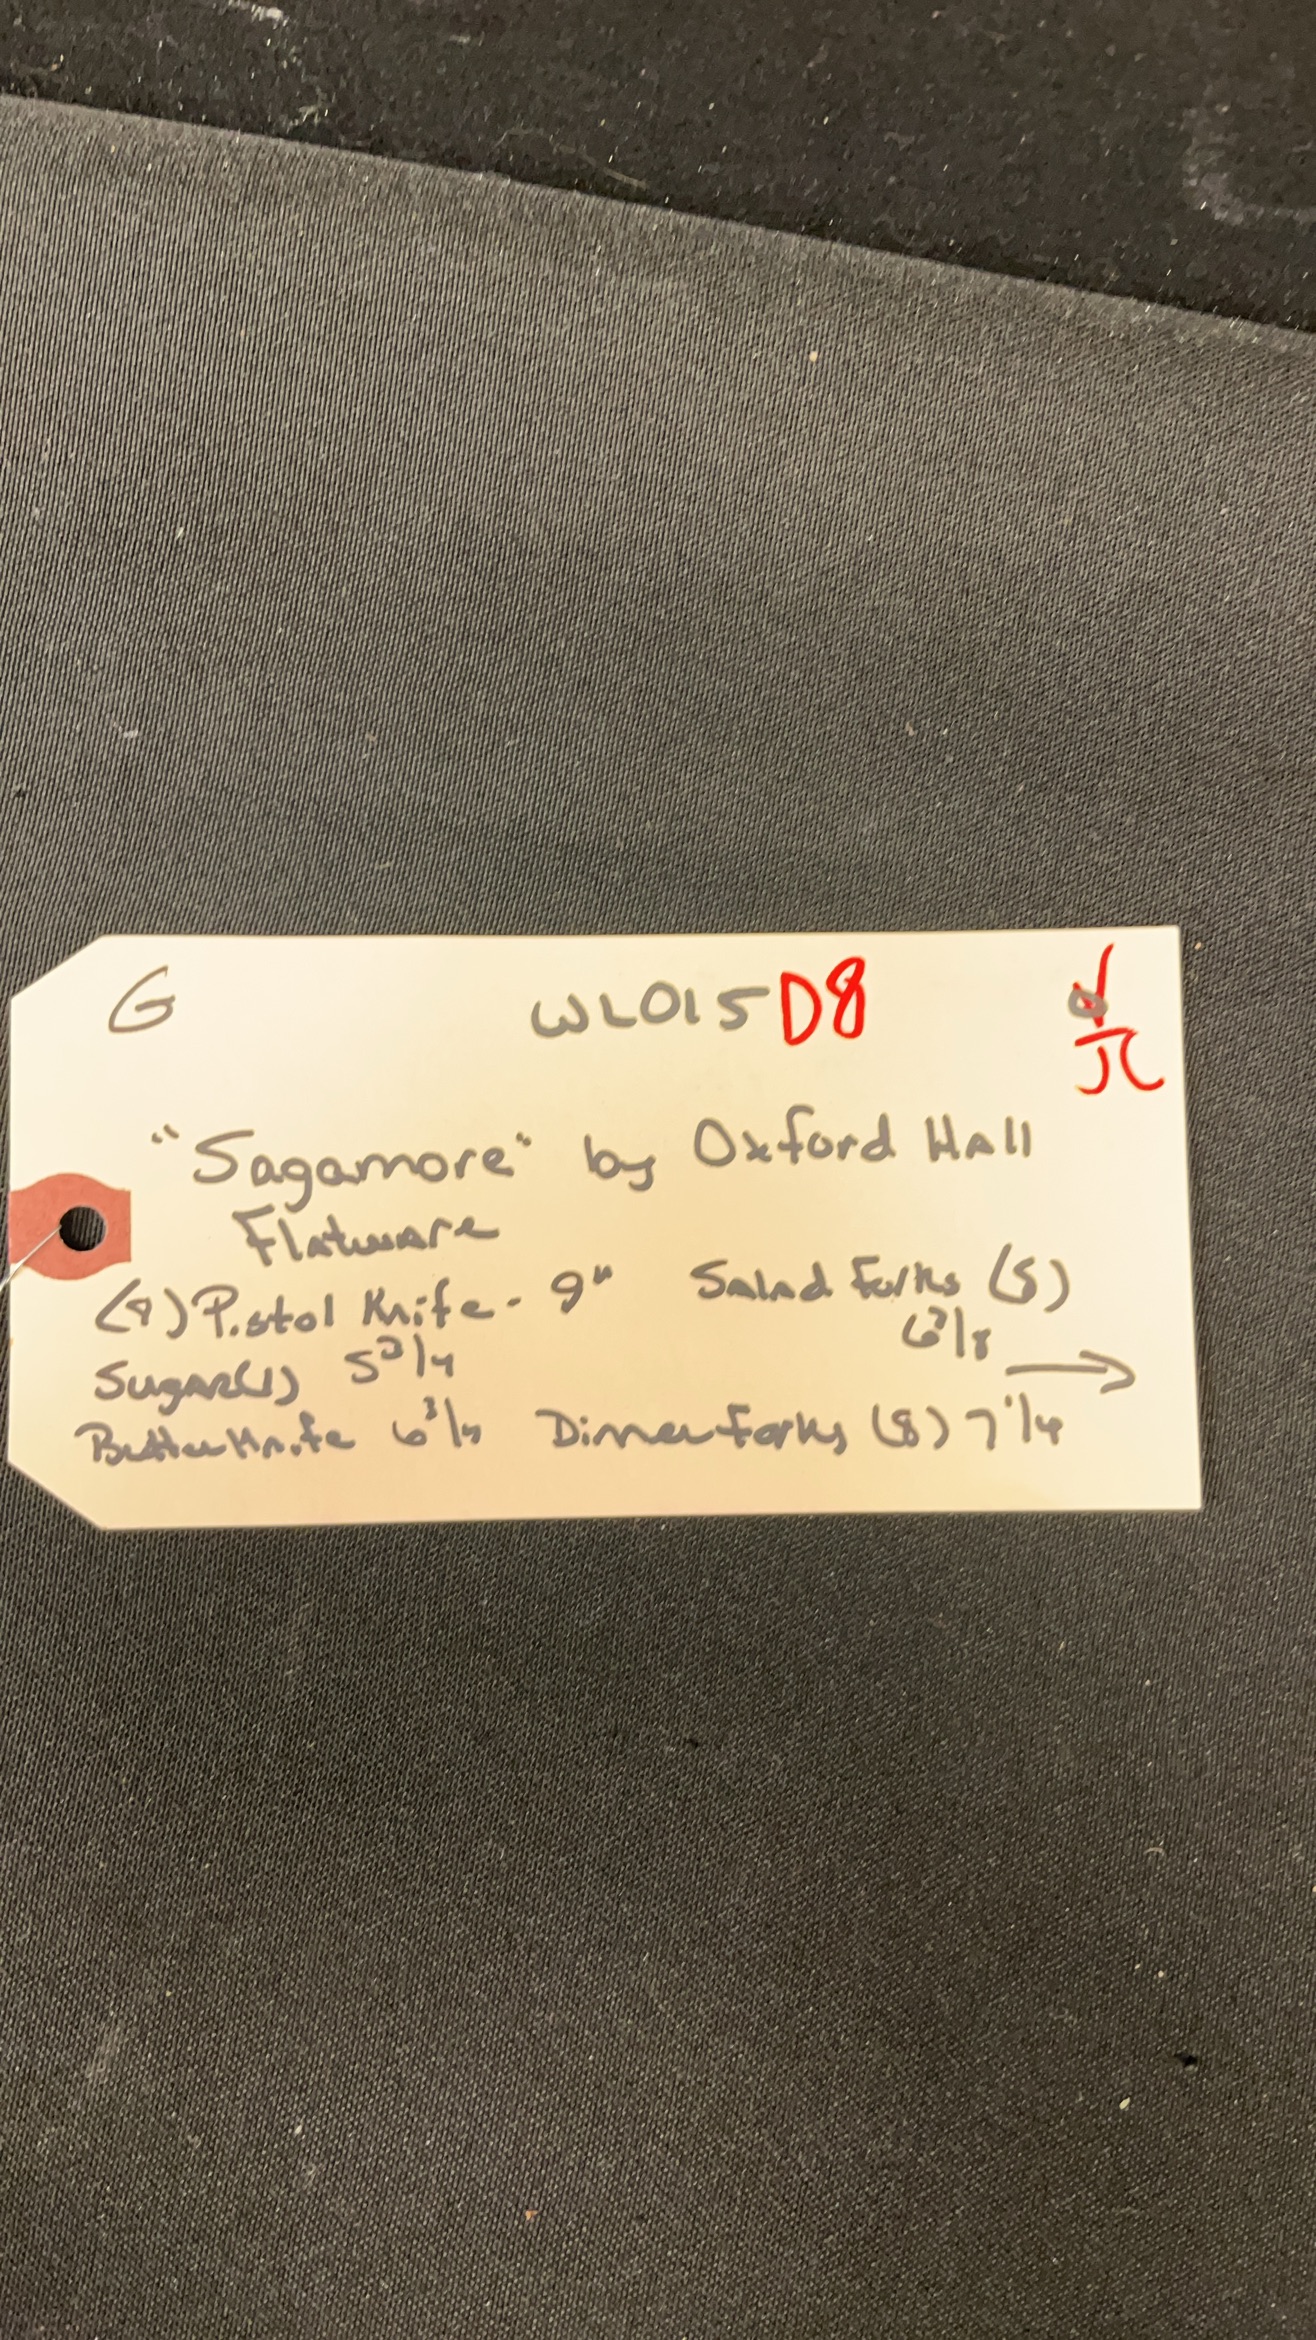 G WL015 D8
"Sagamore" by Oxford Hall
Flatware
(8) Pistol Knife - 9" Salad Forks (8)
6 3/8
Sugar (1) 5 3/4
Butter Knife 6 3/4 Dinner Forks (8) 7 1/4